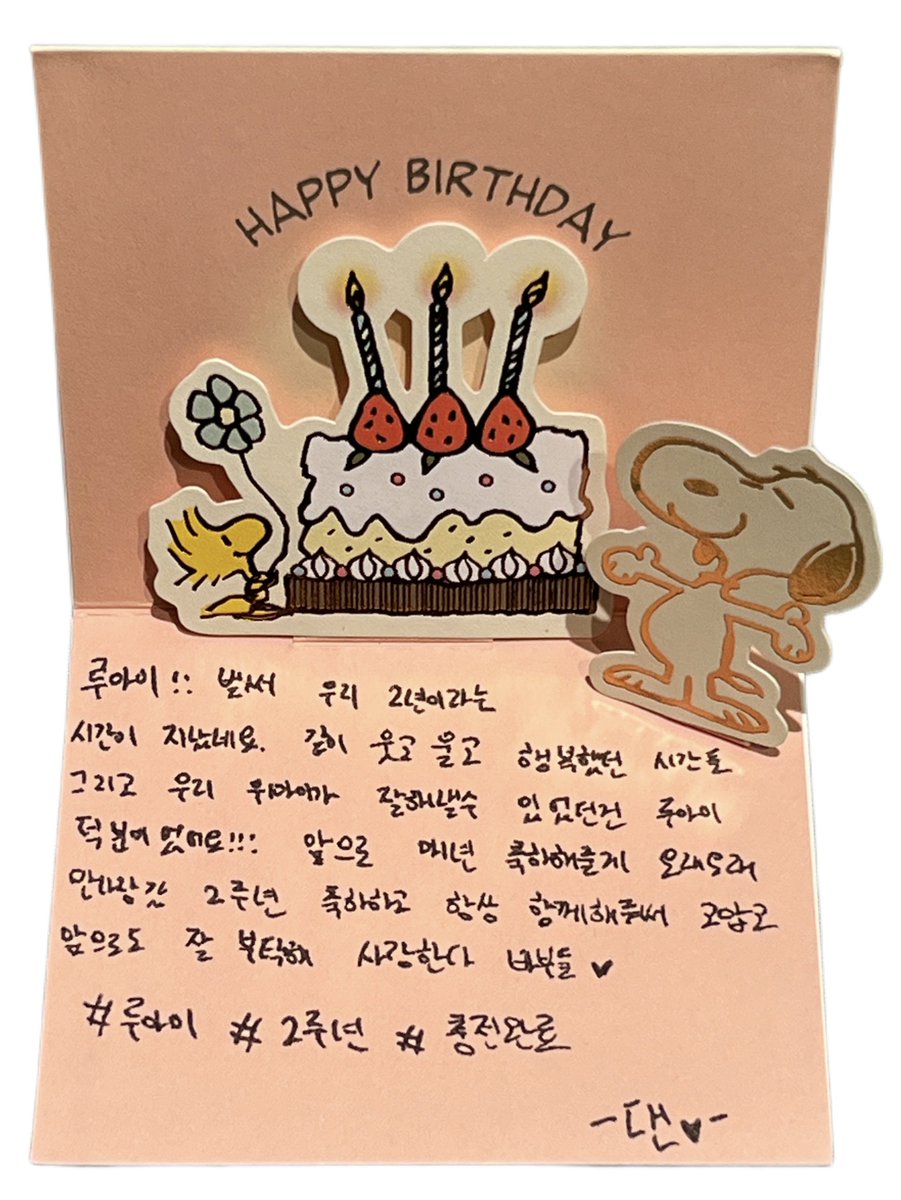 HAPPY BIRTHDAY
루아이!! 벌써 우리 2년이라는
시간이 지났네요. 같이 웃고 울고 행복했던 시간들
그리고 우리 위아이가 잘해낼수 있었던건 루아이
덕분이었어요!!! 앞으로 매년 축하해줄게 오래오래
만나장 2주년 축하하고 항상 함께해줘써 고맙고
앞으로도 잘 부탁해 사랑한다 바부들 ♥
#루아이 #2주년 #충전완료
-댄♥-